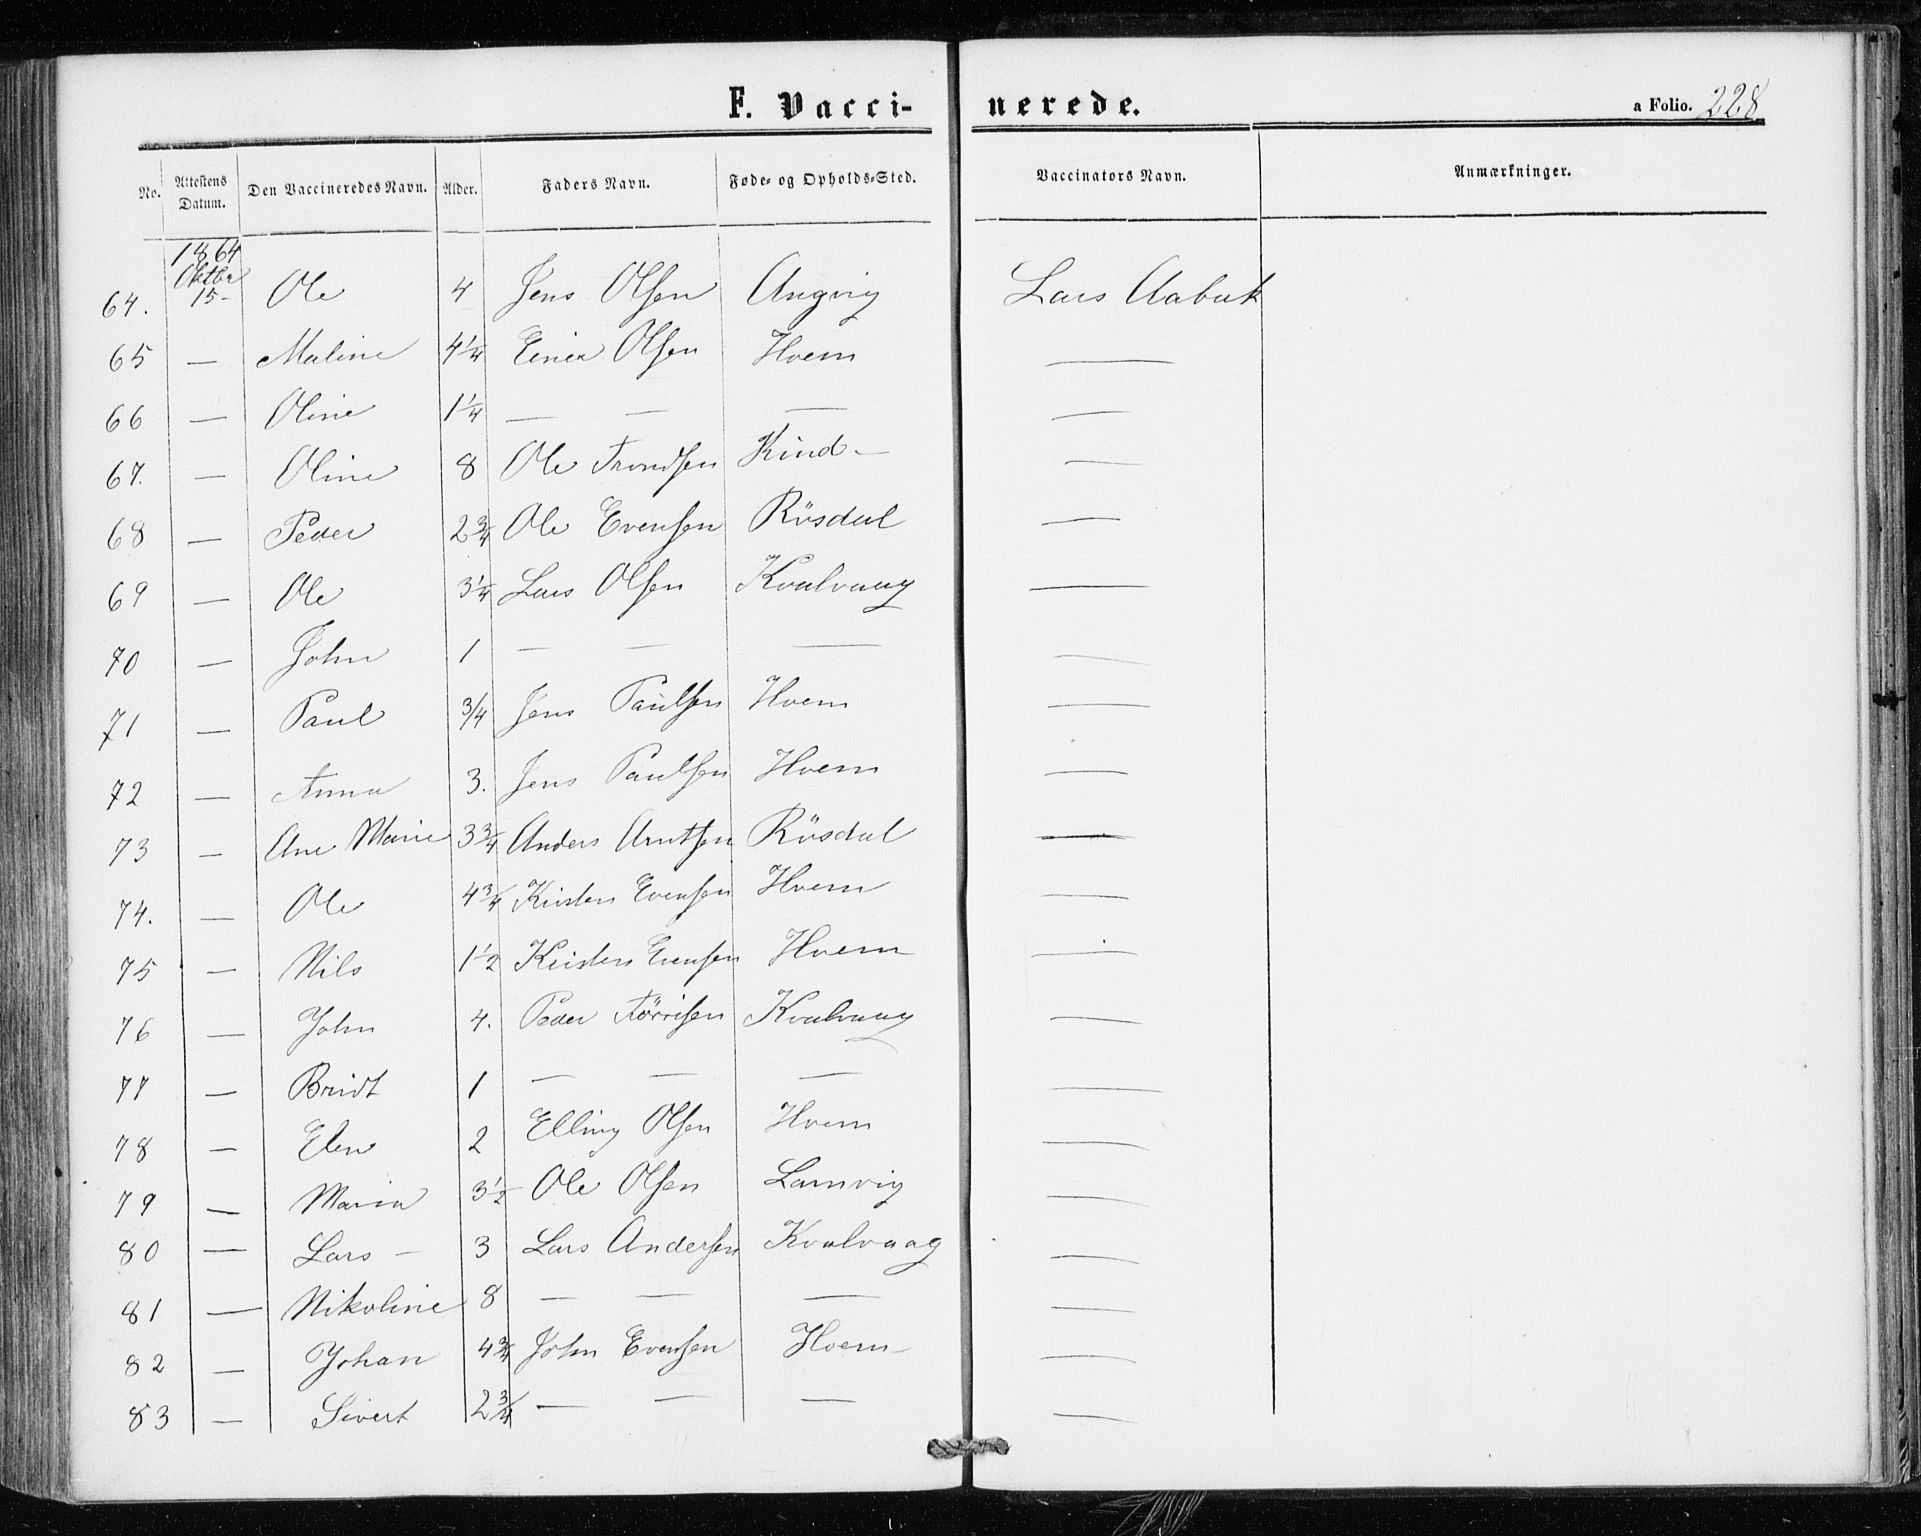 F. Vacci- nerede. a Folio. 228
No. Attestens Datum. Den Vaccineredes Navn. Alder. Faders Navn. Føde- og Opholds-Sted. Vaccinators Navn. Anmærkninger.
1864
Oktbr
64. 15- Ole 4 Jens Olsen Angvig Lars Aabak
65 — Maline 4 1/4 Einer Olsen Hoem —
66 — Oline 1 1/4 — — — —
67. — Oline 8 Ole Trondsen Kind- —
68 — Peder 2 3/4 Ole Evensen Rösdal —
69 — Ole 3 1/4 Lars Olsen Kvalvaag —
70 — John 1 — — — —
71 — Paul 3/4 Jens Paulsen Hoem —
72 — Anna 3. Jens Paulsen Hoem —
73 — Ane Marie 3 3/4 Anders Arntsen Rösdal —
74. — Ole 4 3/4 Kristen Evensen Hoem —
75 — Nils 1 1/2 Kristen Evensen Hoem —
76 — John 4. Peder Törrisen Kvalvaag —
77 — Bridt 1 — — — —
78 — Elen 2 Elling Olsen Hoem —
79 — Maria 3 1/2 Ole Olsen Lamvig —
80 — Lars — 3 Lars Andersen Kvalvaag —
81 — Nikoline 8 — — — —
82 — Johan 4 3/4 John Evensen Hoem —
83 — Sivert 2 3/4 — — — —